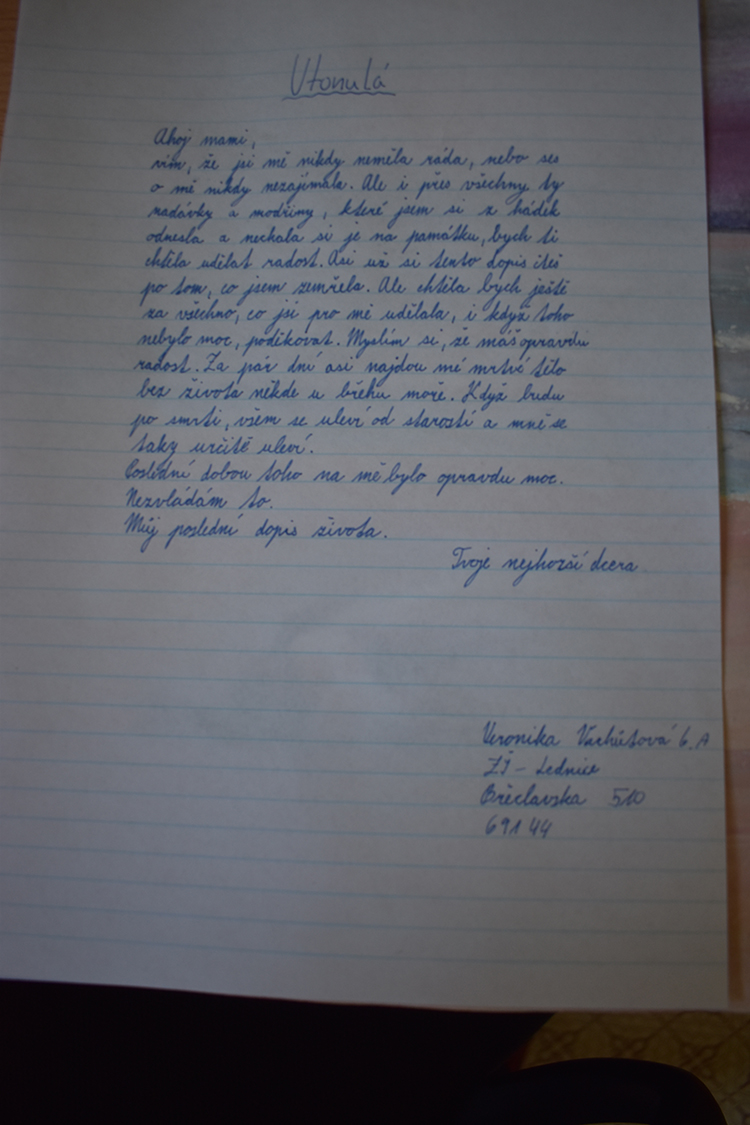 Utonulá
Ahoj mami,
vím, že jsi mě nikdy neměla ráda, nebo ses
o mě nikdy nezajímala. Ale i přes všechny ty
nadávky a modřiny, které jsem si z hádek
odnesla a nechala si je na památku, bych ti
chtěla udělat radost. Asi už si tento dopis čteš
po tom, co jsem zemřela. Ale chtěla bych ještě
za všechno, co jsi pro mě udělala, i když toho
nebylo moc, poděkovat. Myslím si, že máš opravdu
radost. Za pár dní asi najdou mé mrtvé tělo
bez života někde u břehu moře. Když budu
po smrti, všem se uleví od starostí a mně se
taky určitě uleví.
Poslední dobou toho na mě bylo opravdu moc.
Nezvládám to.
Můj poslední dopis života.
Tvoje nejhorší dcera
Veronika 6.A
ZŠ - Lednice
Břeclavska 510
691 44